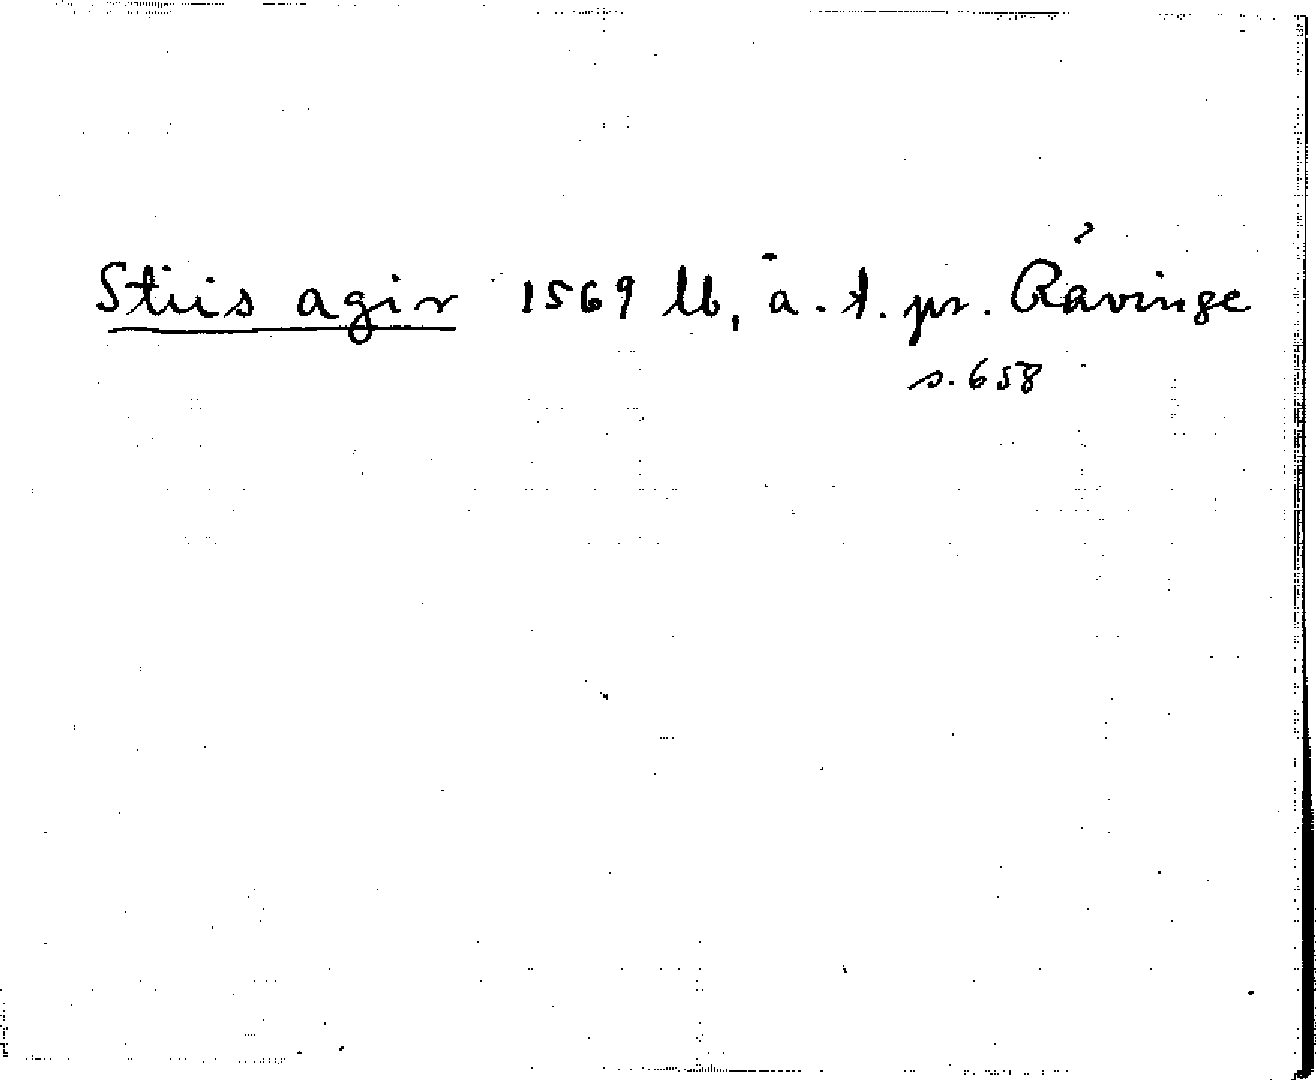 Stiis agir 1569 lb, ā. t. pr. Rävinge
s. 658